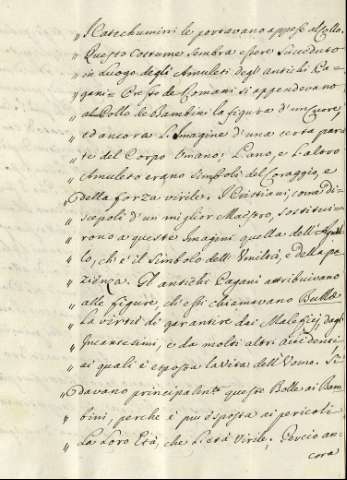 „ I Catechumini le portavano appese al Collo.
„ Questo Costume sembra essere succeduto
„ in luogo degli Amuleti degli antichi Pa-
„ gani = Presso de Romani si appendevano
„ al Collo de Bambini la figura d'un Cuore,
„ ed ancora l'Imagine d'una certa par
„ te del Corpo Umano: L'uno, e l'altro
„ Amuleto erano Simboli del Coraggio, e
„ della forza virile. I Cristiani, come di-
„ scepoli d'un miglior Maestro, sostitui-
„ rono a queste Imagini quella dell'Agnel-
„ lo, ch'è il Simbolo dell'Umiltà, e della pa
„ zienza. Gl antichi Pagani attribuivano
„ alle figure, ch'essi chiamavano Bullae
„ la virtù di garantire dai Malefizj, dagli
„ Incantesimi, e da molti altri accidenti
„ ai quali è esposta la vita dell'Uomo. Si
„ davano principalmte queste Bolle ai Bam
„ bini, perchè è più esposta ai pericoli
„ la loro Età, che l'età Virile. Perciò an-
cora